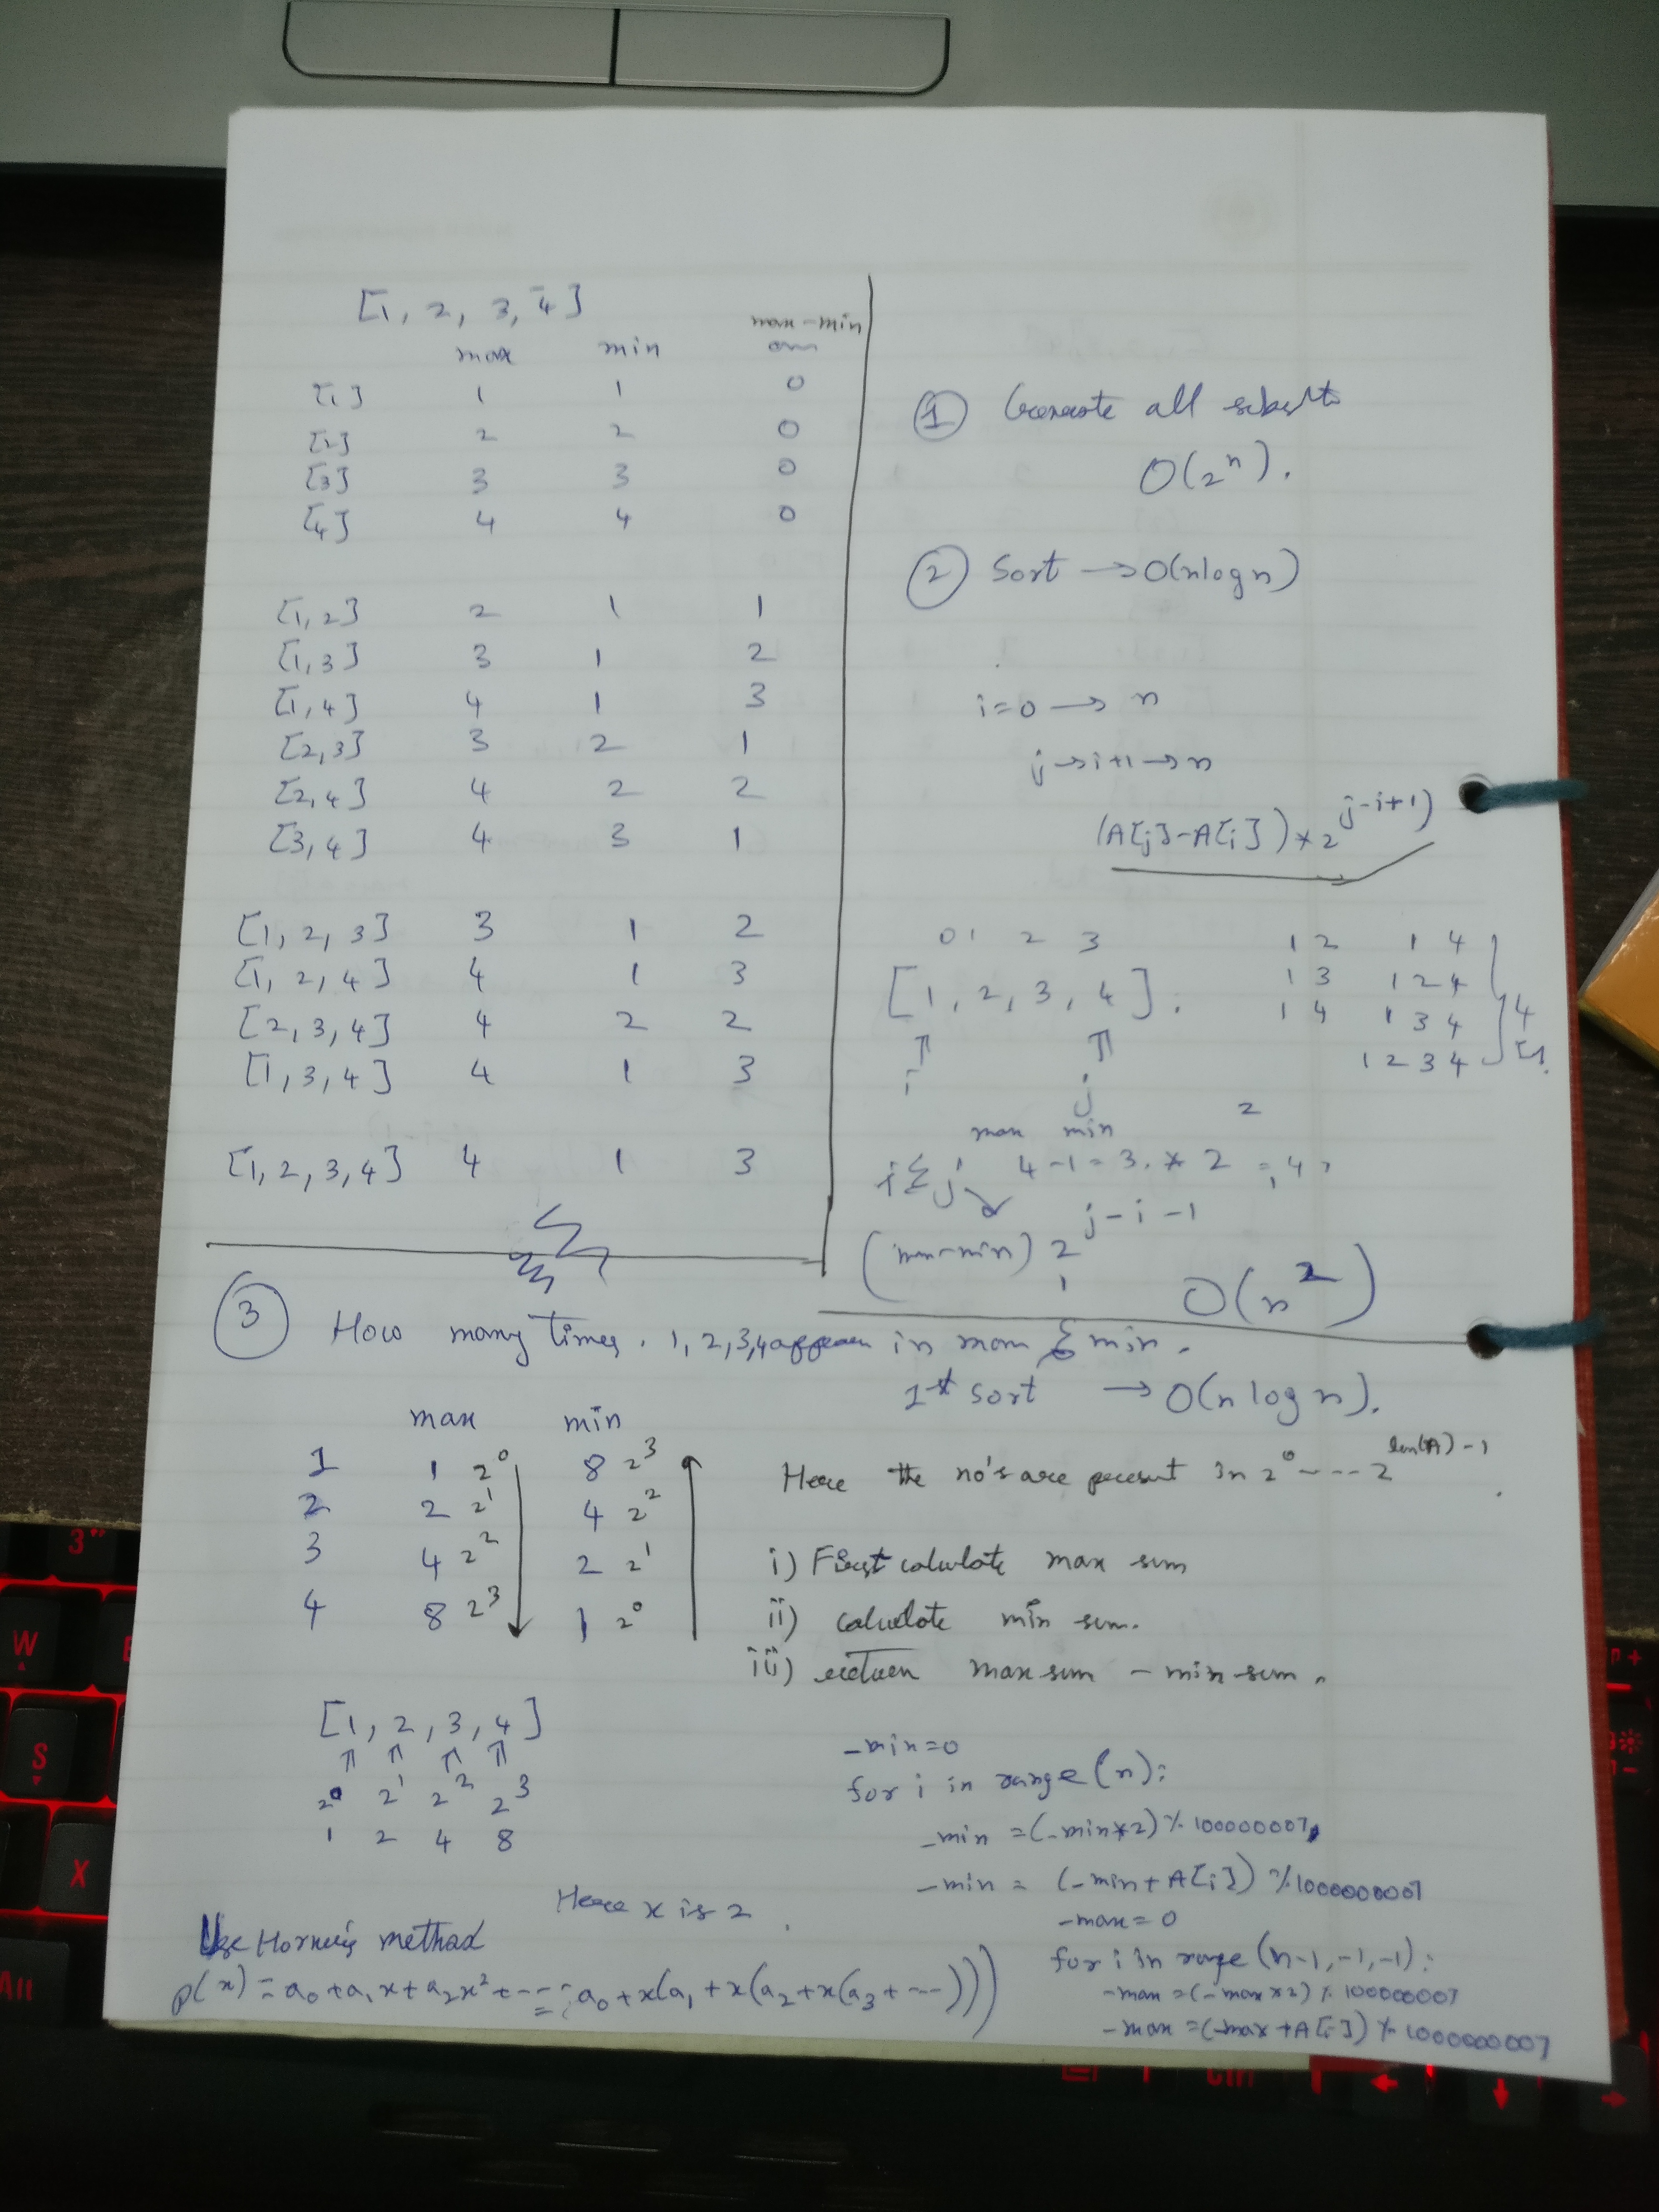 [1, 2, 3, 4]
max min max-min
[1] 1 1 0
[2] 2 2 0
[3] 3 3 0
[4] 4 4 0
[1,2] 2 1 1
[1,3] 3 1 2
[1,4] 4 1 3
[2,3] 3 2 1
[2,4] 4 2 2
[3,4] 4 3 1
[1, 2, 3] 3 1 2
[1, 2, 4] 4 1 3
[2, 3, 4] 4 2 2
[1, 3, 4] 4 1 3
[1, 2, 3, 4] 4 1 3
① Generate all subsets
O(2^n).
② Sort → O(nlogn)
i=0 → n
j→i+1→n
(A[j]-A[i])*2^(j-i+1)
0 1 2 3
[1, 2, 3, 4].
i j
1 2
1 3
1 4
1 4
1 2 4
1 3 4
1 2 3 4
4
max min
i j 4-1=3 * 2^2 = 4
(max-min) 2^(j-i-1)
1
O(n^2)
③ How many times. 1, 2, 3, 4 appear in max & min.
1st sort → O(n log n).
max min
1 1 2^0 8 2^3
2 2 2^1 4 2^2
3 4 2^2 2 2^1
4 8 2^3 1 2^0
Here the no's are present in 2^0 ---- 2^(len(A)-1)
i) First calculate max sum
ii) calculate min sum.
iii) return max sum - min sum.
[1, 2, 3, 4]
2^0 2^1 2^2 2^3
1 2 4 8
Here x is 2.
Use Horner's method
p(x) = a0+a1x+a2x^2+--- = a0+x(a1+x(a2+x(a3+---)))
_min=0
for i in range(n):
_min = (_min*2) % 100000007
_min = (_min+A[i]) % 1000000007
_max=0
for i in range(n-1,-1,-1):
_max=(_max*2) % 100000007
_max=(_max+A[i]) % 1000000007
3"
W
S
X
Alt
Ctrl